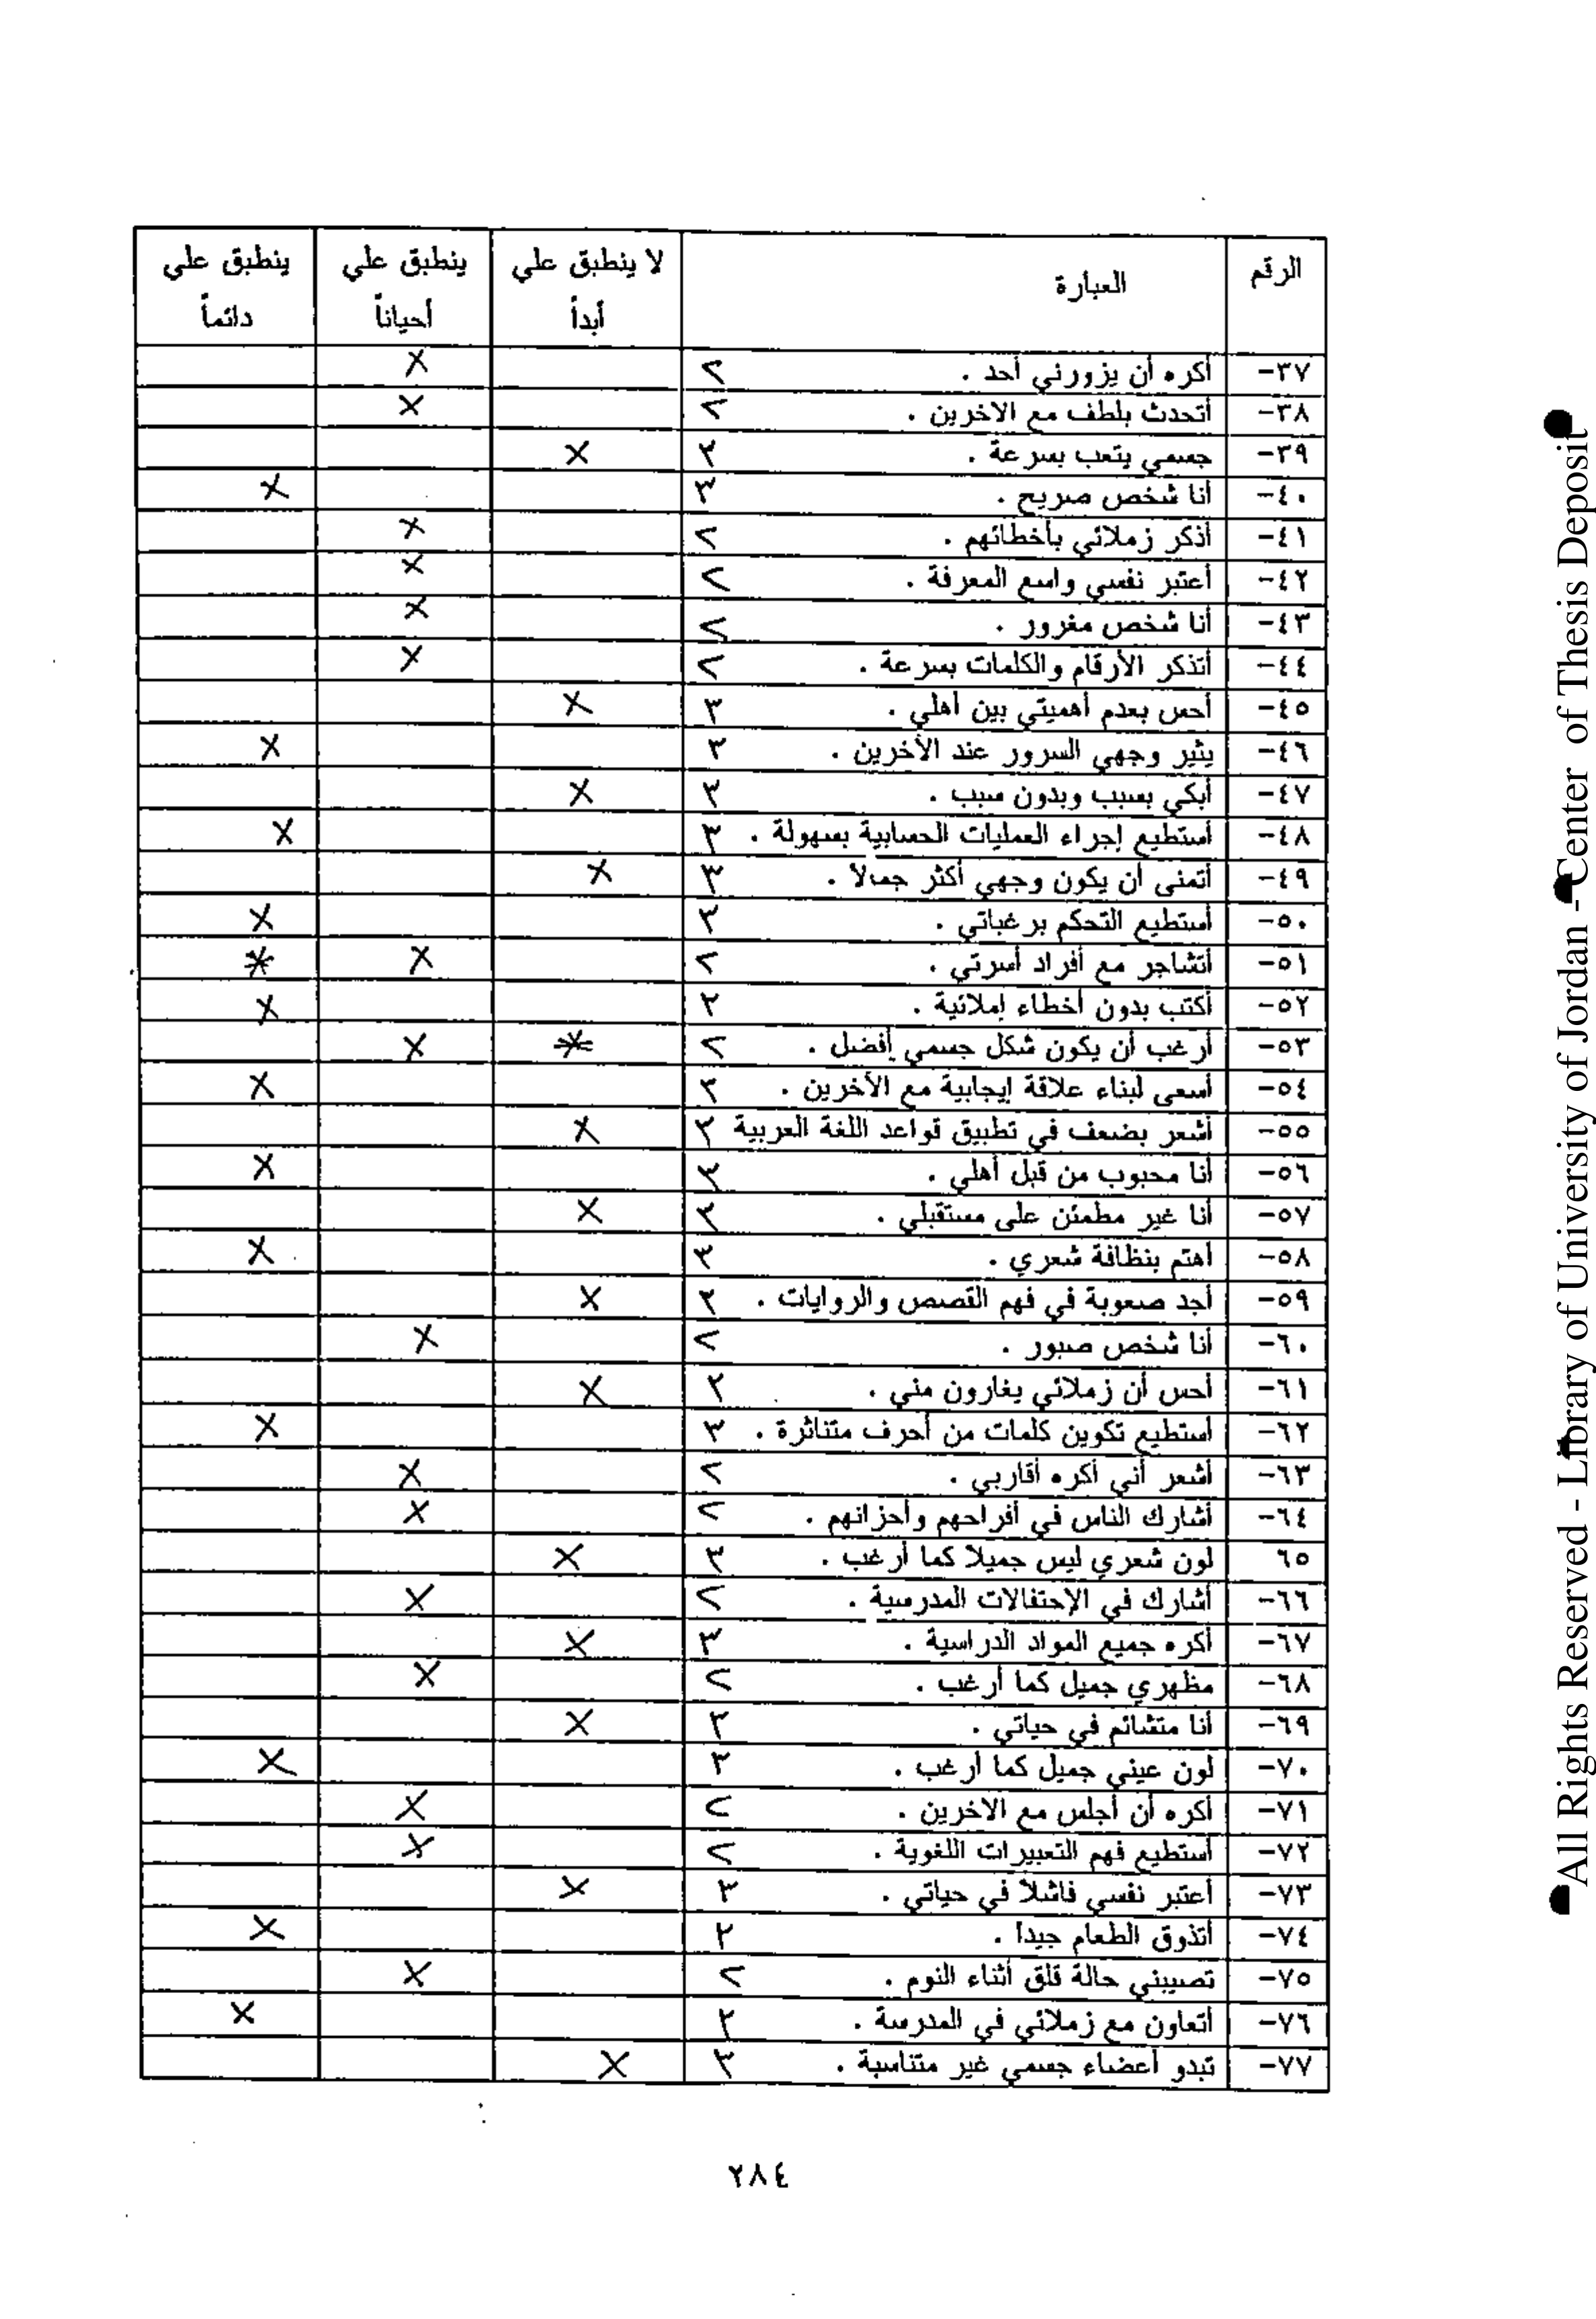 الرقم العبارة لا ينطبق علي أبداً ينطبق علي أحياناً ينطبق علي دائماً
٣٧- أكره أن يزورني أحد . ٢ X
٣٨- أتحدث بلطف مع الاخرين . ٢ X
٣٩- جسمي يتعب بسرعة . ٣ X
٤٠- أنا شخص صريح . ٣ X
٤١- أذكر زملائي بأخطائهم . ٢ X
٤٢- أعتبر نفسي واسع المعرفة . ٢ X
٤٣- أنا شخص مغرور . ٢ X
٤٤- أتذكر الأرقام والكلمات بسرعة . ٢ X
٤٥- أحس بعدم أهميتي بين أهلي . ٣ X
٤٦- يثير وجهي السرور عند الأخرين . ٣ X
٤٧- أبكي بسبب وبدون سبب . ٣ X
٤٨- أستطيع إجراء العمليات الحسابية بسهولة . ٣ X
٤٩- أتمنى أن يكون وجهي أكثر جمالاً . ٣ X
٥٠- أستطيع التحكم برغباتي . ٣ X
٥١- أتشاجر مع أفراد أسرتي . ٢ X
٥٢- أكتب بدون أخطاء إملائية . ٣ X
٥٣- أرغب أن يكون شكل جسمي أفضل . ٢ X
٥٤- أسعى لبناء علاقة إيجابية مع الأخرين . ٣ X
٥٥- أشعر بضعف في تطبيق قواعد اللغة العربية ٣ X
٥٦- أنا محبوب من قبل أهلي . ٣ X
٥٧- أنا غير مطمئن على مستقبلي . ٣ X
٥٨- أهتم بنظافة شعري . ٣ X
٥٩- أجد صعوبة في فهم القصص والروايات . ٣ X
٦٠- أنا شخص صبور . ٢ X
٦١- أحس أن زملائي يغارون مني . ٣ X
٦٢- أستطيع تكوين كلمات من أحرف متناثرة . ٣ X
٦٣- أشعر أني أكره أقاربي . ٢ X
٦٤- أشارك الناس في أفراحهم وأحزانهم . ٢ X
٦٥ لون شعري ليس جميلا كما أرغب . ٣ X
٦٦- أشارك في الإحتفالات المدرسية . ٢ X
٦٧- أكره جميع المواد الدراسية . ٣ X
٦٨- مظهري جميل كما أرغب . ٢ X
٦٩- أنا متشائم في حياتي . ٣ X
٧٠- لون عيني جميل كما أرغب . ٣ X
٧١- أكره أن أجلس مع الاخرين . ٢ X
٧٢- أستطيع فهم التعبيرات اللغوية . ٢ X
٧٣- أعتبر نفسي فاشلاً في حياتي . ٣ X
٧٤- أتذوق الطعام جيدا . ٣ X
٧٥- تصيبني حالة قلق أثناء النوم . ٢ X
٧٦- أتعاون مع زملائي في المدرسة . ٣ X
٧٧- تبدو أعضاء جسمي غير متناسبة . ٣ X
٢٨٤
All Rights Reserved - Library of University of Jordan - Center of Thesis Deposit